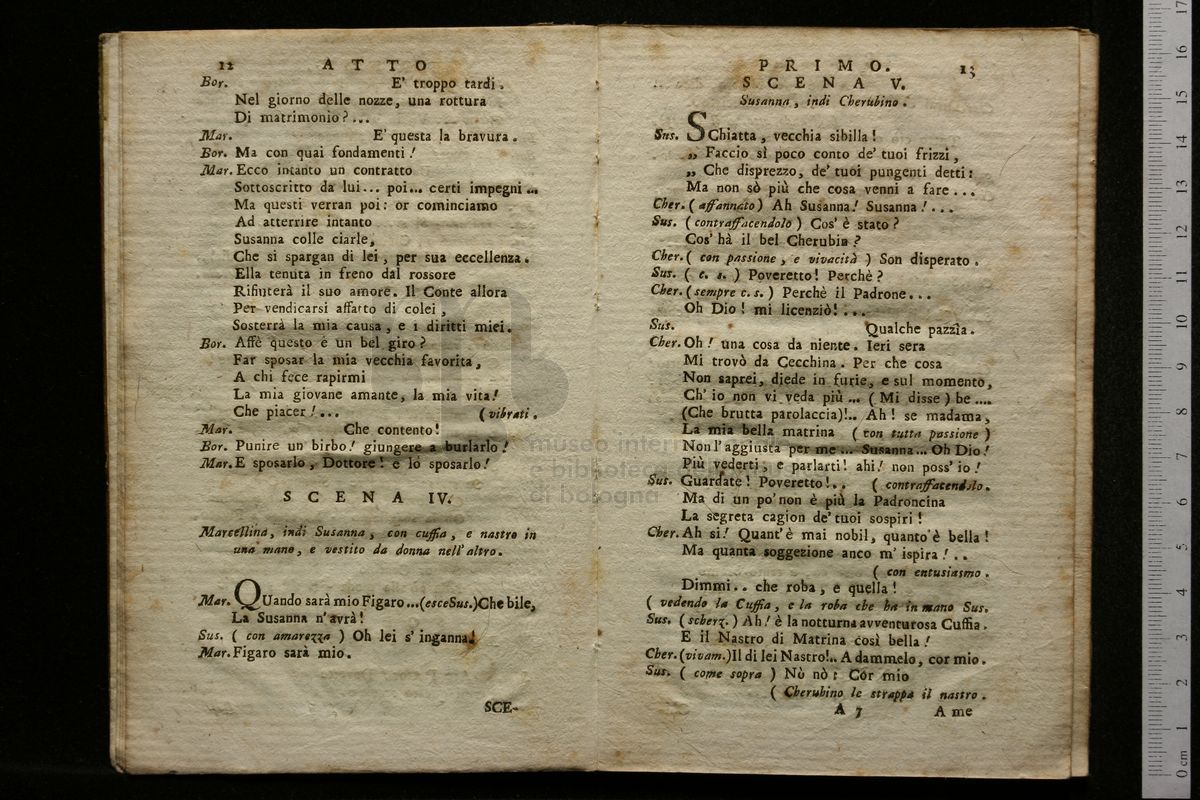 12 ATTO
Bor. E' troppo tardi.
Nel giorno delle nozze, una rottura
Di matrimonio?...
Mar. E' questa la bravura.
Bor. Ma con quai fondamenti!
Mar. Ecco intanto un contratto
Sottoscritto da lui... poi... certi impegni...
Ma questi verran poi: or cominciamo
Ad atterrire intanto
Susanna colle ciarle,
Che si spargan di lei, per sua eccellenza.
Ella tenuta in freno dal rossore
Rifiuterà il suo amore. Il Conte allora
Per vendicarsi affatto di colei,
Sosterrà la mia causa, e i diritti miei.
Bor. Affè questo é un bel giro?
Far sposar la mia vecchia favorita,
A chi fece rapirmi
La mia giovane amante, la mia vita!
Che piacer!... (vibrati.
Mar. Che contento!
Bor. Punire un birbo! giungere a burlarlo!
Mar. E sposarlo, Dottore! e lo sposarlo!
SCENA IV.
Marcellina, indi Susanna, con cuffia, e nastro in
una mano, e vestito da donna nell'altro.
Mar. QUando sarà mio Figaro...(esceSus.)Che bile,
La Susanna n'avrà!
Sus. ( con amarezza ) Oh lei s'inganna!
Mar. Figaro sarà mio.
SCE-
PRIMO. 13
SCENA V.
Susanna, indi Cherubino.
Sus. SChiatta, vecchia sibilla!
„ Faccio sì poco conto de' tuoi frizzi,
„ Che disprezzo, de' tuoi pungenti detti:
Ma non sò più che cosa venni a fare...
Cher. ( affannato ) Ah Susanna! Susanna!...
Sus. ( contraffacendolo ) Cos' è stato?
Cos' hà il bel Cherubin?
Cher. ( con passione, e vivacità ) Son disperato.
Sus. ( c. s. ) Poveretto! Perchè?
Cher. (sempre c. s. ) Perchè il Padrone...
Oh Dio! mi licenziò!...
Sus. Qualche pazzìa.
Cher. Oh! una cosa da niente. Ieri sera
Mi trovò da Cecchina. Per che cosa
Non saprei, diede in furie, e sul momento,
Ch' io non vi veda più... ( Mi disse ) be....
(Che brutta parolaccia)!.. Ah! se madama,
La mia bella matrina ( con tutta passione )
Non l'aggiusta per me... Susanna... Oh Dio!
Più vederti, e parlarti! ahi! non poss' io!
Sus. Guardate! Poveretto!.. ( contraffacendolo.
Ma di un po' non è più la Padroncina
La segreta cagion de' tuoi sospiri!
Cher. Ah si! Quant' è mai nobil, quanto è bella!
Ma quanta soggezione anco m' ispira!..
( con entusiasmo.
Dimmi.. che roba, e quella!
( vedendo la Cuffia, e la roba che ha in mano Sus.
Sus. ( scherz. ) Ah! è la notturna avventurosa Cuffia.
E il Nastro di Matrina così bella!
Cher. (vivam.)Il di lei Nastro!.. A dammelo, cor mio.
Sus. ( come sopra ) Nò nò: Cor mio
( Cherubino le strappa il nastro.
A 7 A me
museo internazionale
e biblioteca della musica
di bologna
0 cm 1 2 3 4 5 6 7 8 9 10 11 12 13 14 15 16 17